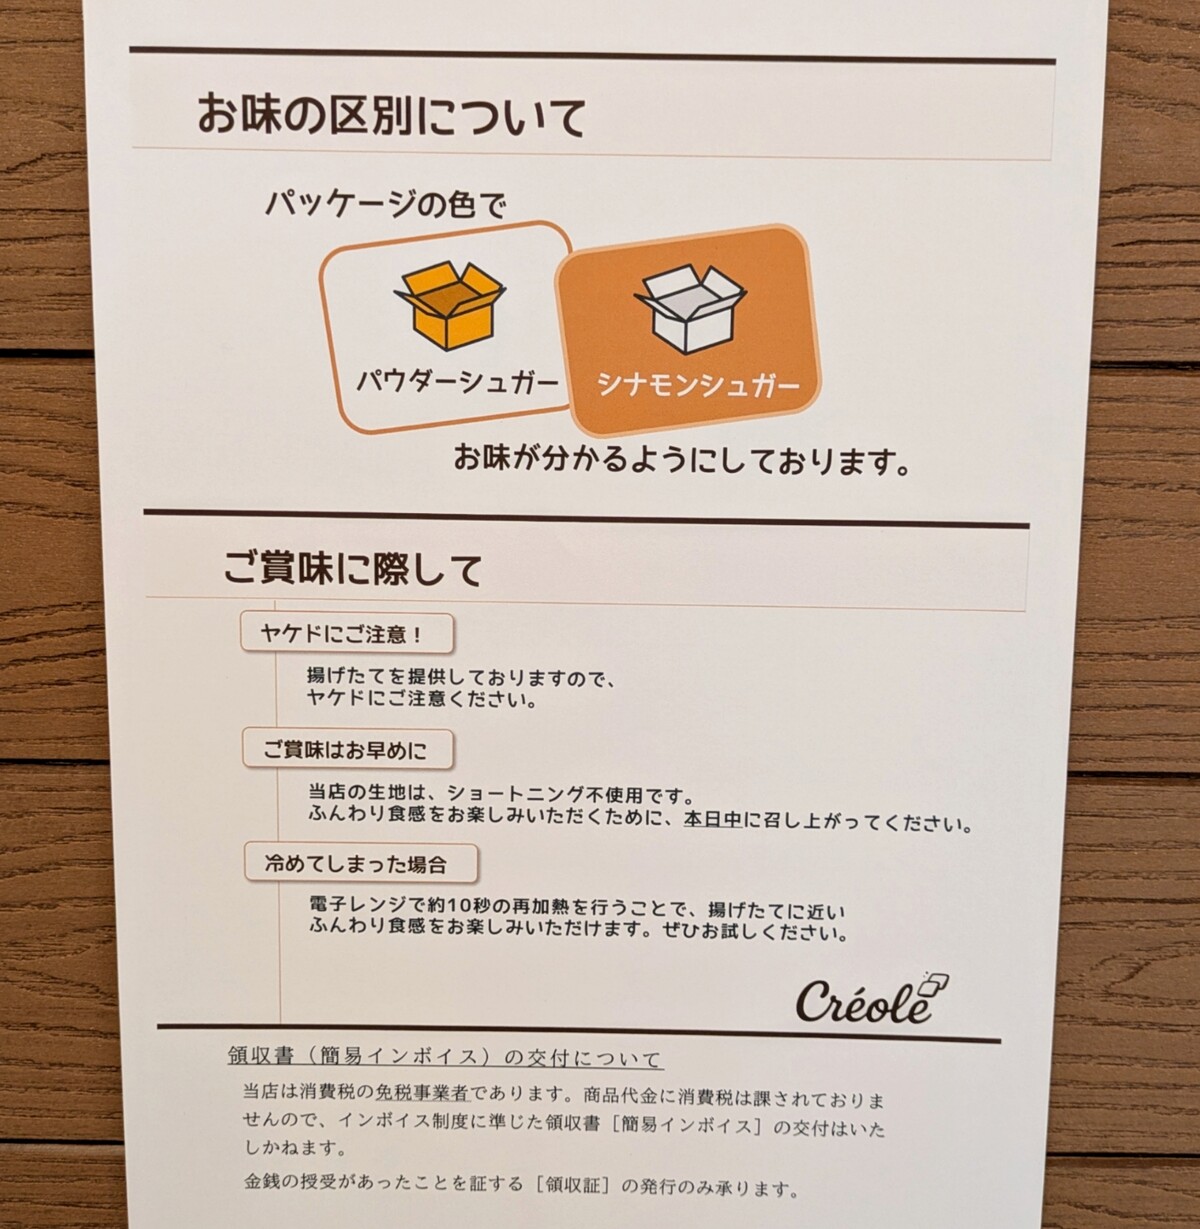 お味の区別について
パッケージの色で
パウダーシュガー
シナモンシュガー
お味が分かるようにしております。
ご賞味に際して
ヤケドにご注意！
揚げたてを提供しておりますので、
ヤケドにご注意ください。
ご賞味はお早めに
当店の生地は、ショートニング不使用です。
ふんわり食感をお楽しみいただくために、本日中に召し上がってください。
冷めてしまった場合
電子レンジで約10秒の再加熱を行うことで、揚げたてに近い
ふんわり食感をお楽しみいただけます。ぜひお試しください。
Créole
領収書（簡易インボイス）の交付について
当店は消費税の免税事業者であります。商品代金に消費税は課されておりま
せんので、インボイス制度に準じた領収書［簡易インボイス］の交付はいた
しかねます。
金銭の授受があったことを証する［領収証］の発行のみ承ります。